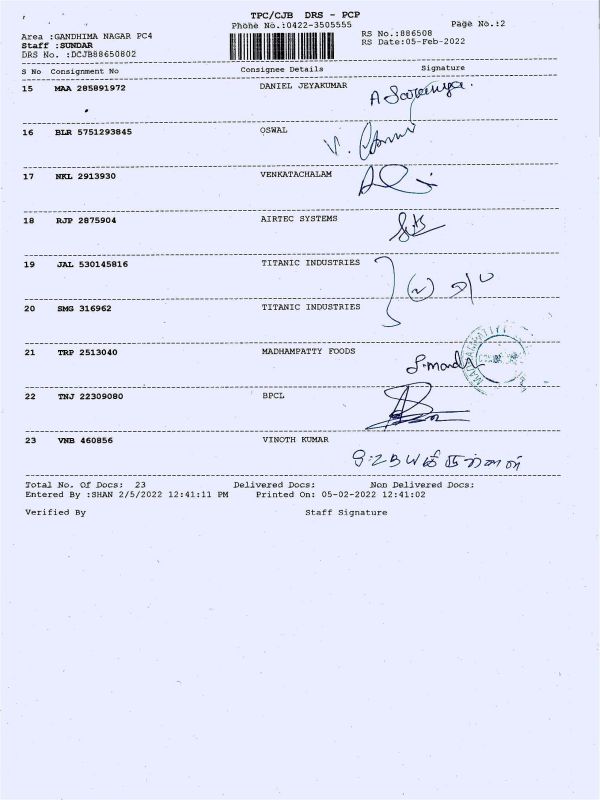 TPC/CJB DRS - PCP
Phone No.:0422-3505555
Page No.:2
Area :GANDHIMA NAGAR PC4
RS No.:886508
Staff :SUNDAR
RS Date:05-Feb-2022
DRS No. :DCJB88650802
S No Consignment No Consignee Details Signature
15 MAA 285891972 DANIEL JEYAKUMAR
16 BLR 5751293845 OSWAL
17 NKL 2913930 VENKATACHALAM
18 RJP 2875904 AIRTEC SYSTEMS
19 JAL 530145816 TITANIC INDUSTRIES
20 SMG 316962 TITANIC INDUSTRIES
21 TRP 2513040 MADHAMPATTY FOODS
22 TNJ 22309080 BPCL
23 VNB 460856 VINOTH KUMAR
Total No. Of Docs: 23 Delivered Docs: Non Delivered Docs:
Entered By :SHAN 2/5/2022 12:41:11 PM Printed On: 05-02-2022 12:41:02
Verified By Staff Signature